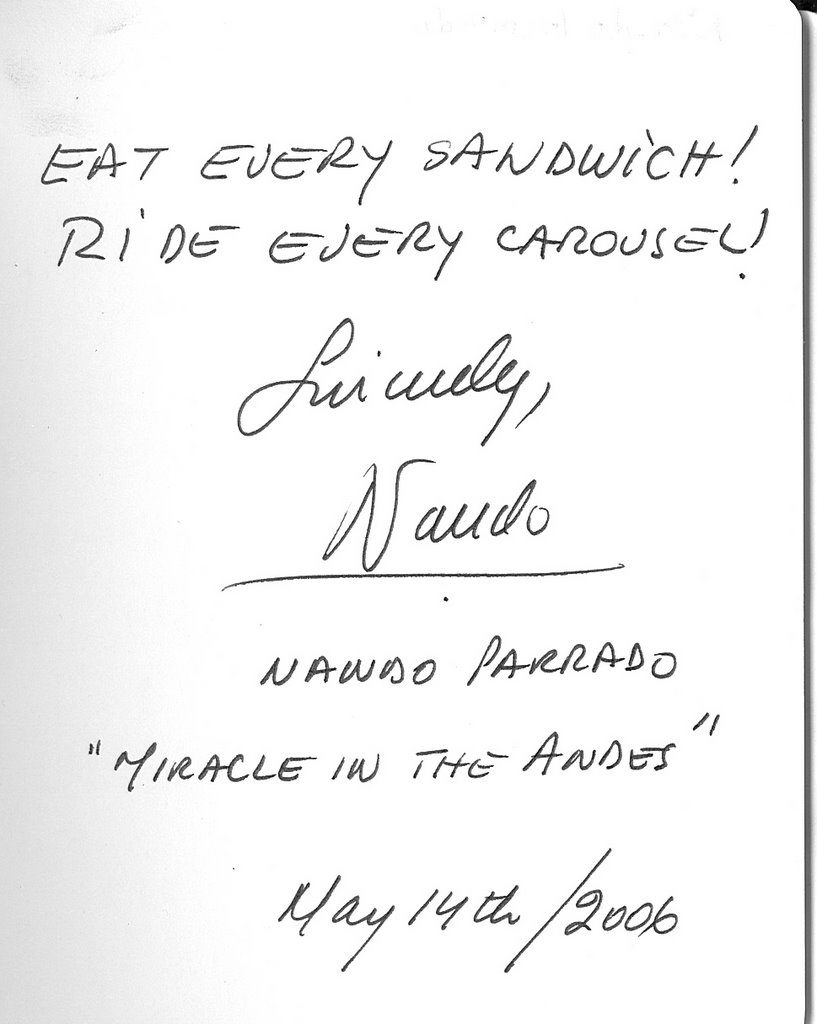 EAT EVERY SANDWiCH!
RiDE EVERY CAROUSEL!
Sincerely,
Nando
NANDO PARRADO
"MIRACLE IN THE ANDES"
May 14th/2006